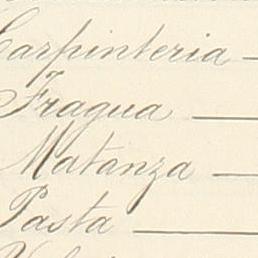 Carpinteria
Fragua
Matanza
Pasta